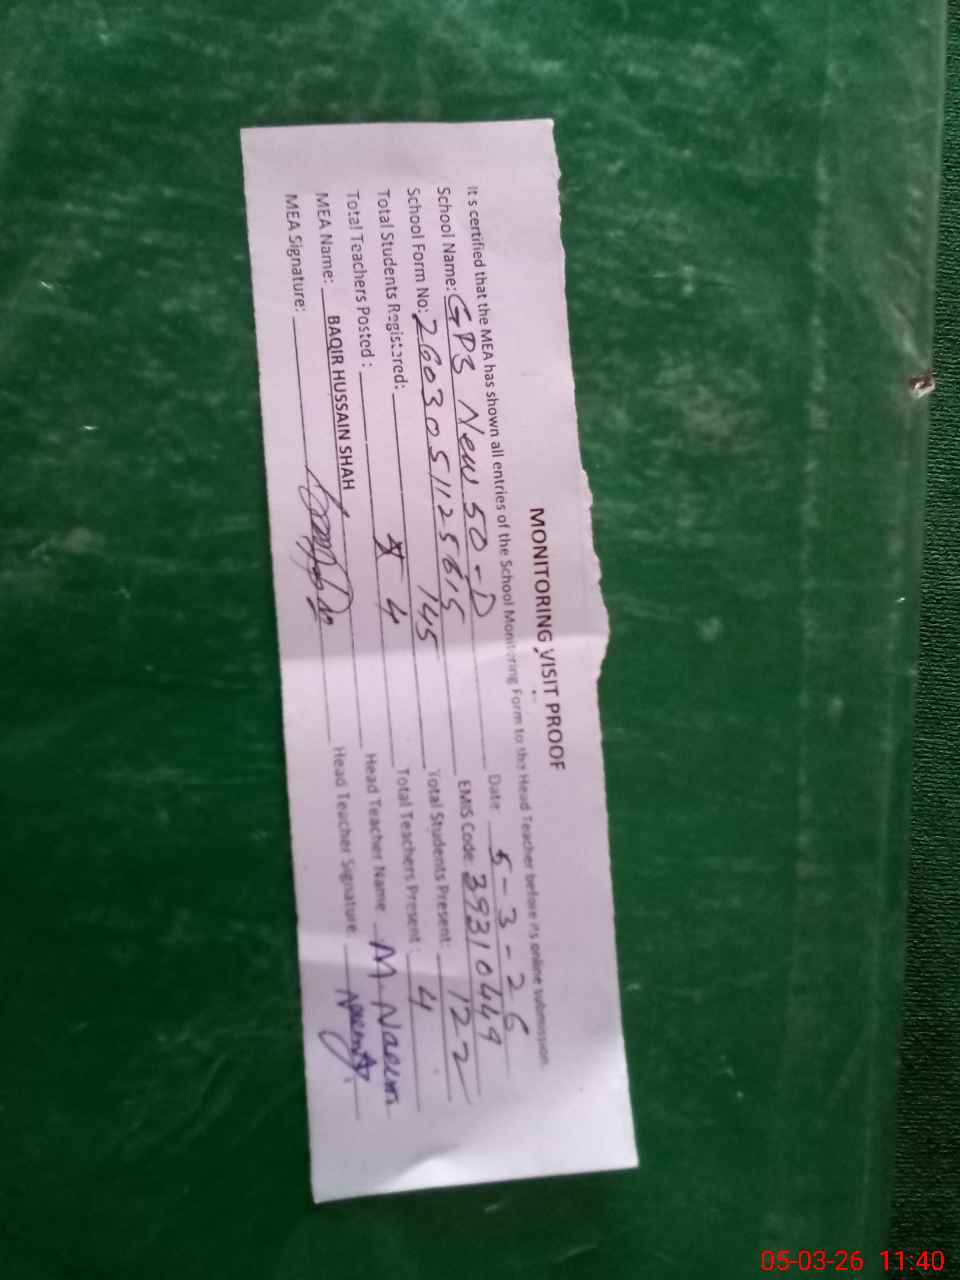 MONITORING VISIT PROOF
It s certified that the MEA has shown all entries of the School Monitoring Form to the Head Teacher before its online submission.
School Name: GPS New 50-D Date: 5-3-26
School Form No: 2603051125615 EMIS Code: 39310449
Total Students Registered: 145 Total Students Present: 122
Total Teachers Posted : 4 Total Teachers Present : 4
MEA Name: BAQIR HUSSAIN SHAH Head Teacher Name M. Naeem
MEA Signature: Head Teacher Signature: Naeem
05-03-26 11:40